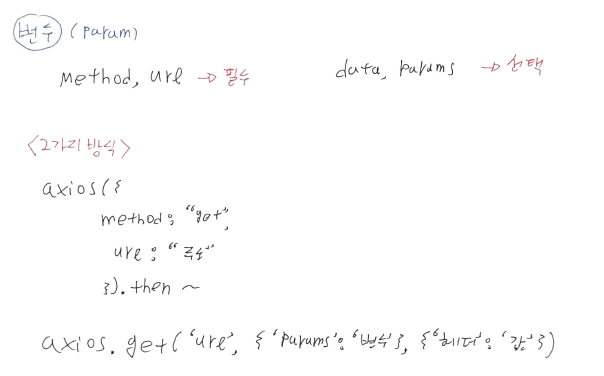 변수 (param)
method, url → 필수    data, params → 선택
<2가지 방식>
axios({
method: "get",
url: "주소"
}).then ~
axios.get('url', { 'params': '변수' }, { '헤더': '값' })